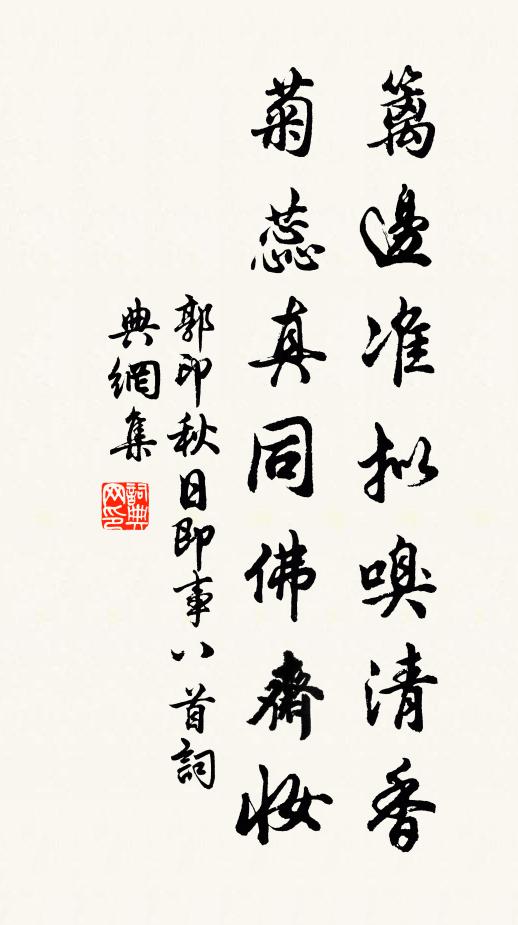 籬邊准拟嗅清香
菊蕊真同佛齋妝
郭印秋日即事八首詞
典網集
詞典網印